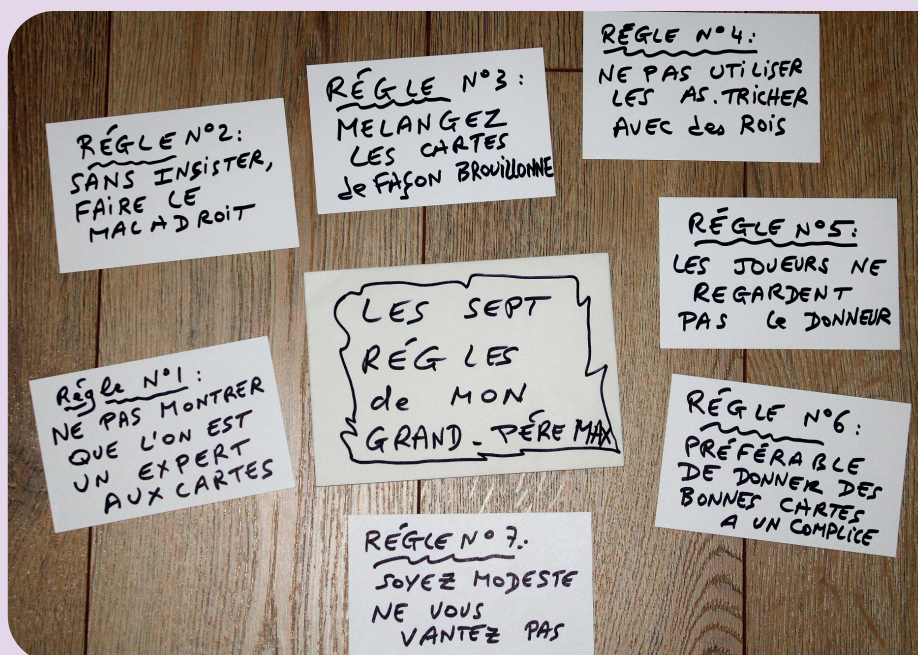 LES SEPT
RÉGLES
de MON
GRAND-PÉRE MAX
Régle N°1:
NE PAS MONTRER
QUE L'ON EST
UN EXPERT
AUX CARTES
RÉGLE N°2:
SANS INSISTER,
FAIRE LE
MALADROIT
RÉGLE N°3:
MELANGEZ
LES CARTES
de FAÇON BROUILLONNE
RÉGLE N°4:
NE PAS UTILISER
LES AS. TRICHER
AVEC des ROIS
RÉGLE N°5:
LES JOUEURS NE
REGARDENT
PAS le DONNEUR
RÉGLE N°6:
PRÉFÉRABLE
DE DONNER DES
BONNES CARTES
A UN COMPLICE
RÉGLE N°7:
SOYEZ MODESTE
NE VOUS
VANTEZ PAS